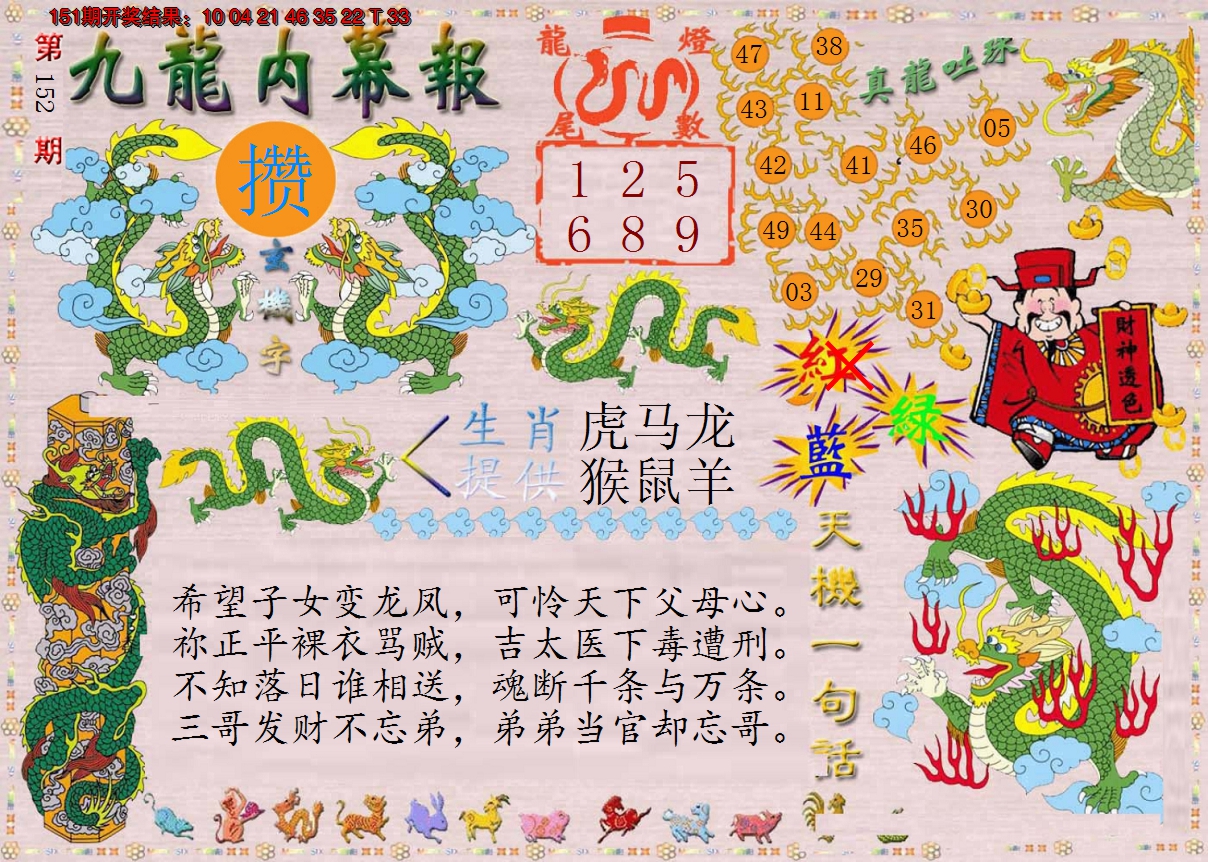 151期开奖结果：10 04 21 46 35 22 T 33
第152期
九龍内幕報
攒
玄機字
龍燈
尾數
1 2 5
6 8 9
真龍吐珠
47
38
43
11
42
41
46
05
49
44
35
30
03
29
31
紅
綠
藍
財神透色
生肖 虎马龙
提供 猴鼠羊
天機一句話
希望子女变龙凤，可怜天下父母心。
祢正平裸衣骂贼，吉太医下毒遭刑。
不知落日谁相送，魂断千条与万条。
三哥发财不忘弟，弟弟当官却忘哥。